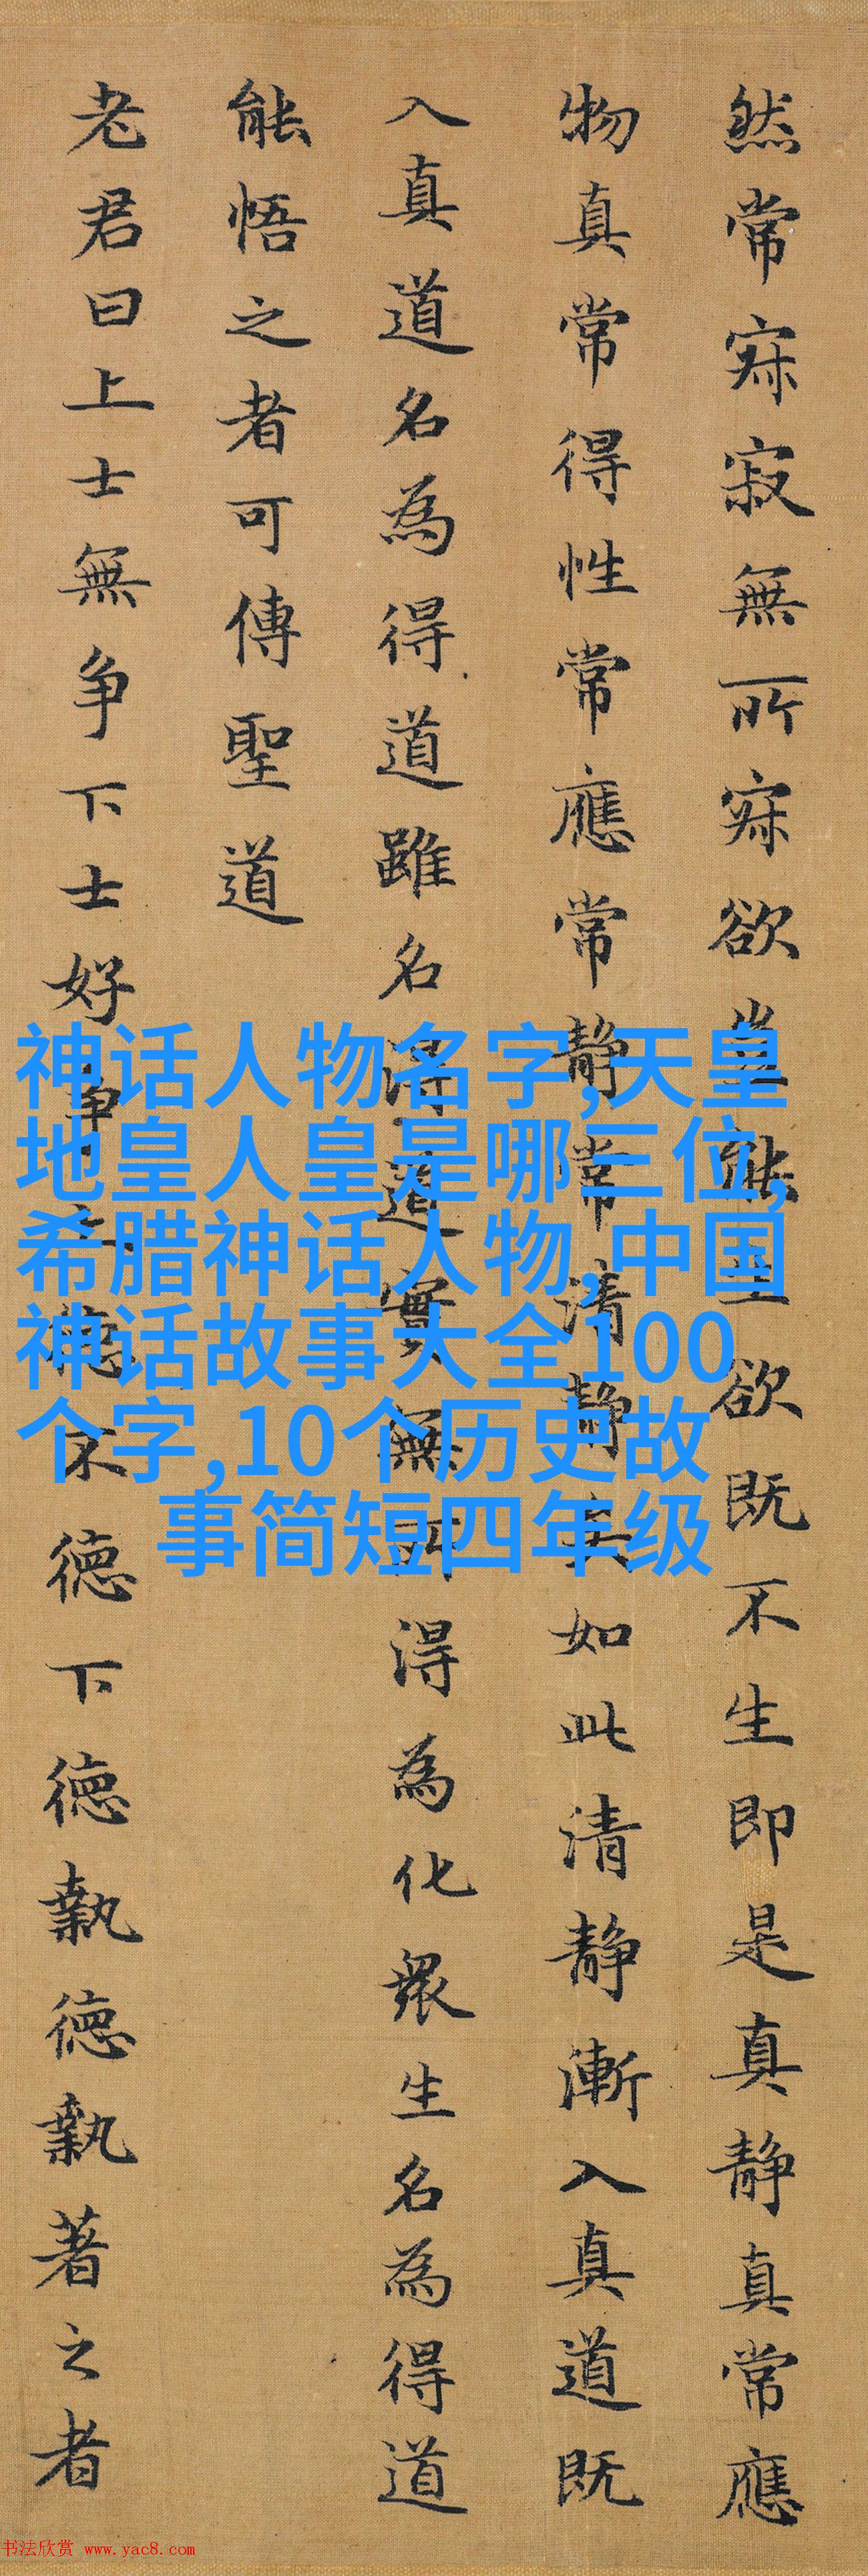 然常寂寂無所寂欲豈能生欲既不生即是真静真常應
物真常得性常應常静常清静矣如此清静漸入真道既
入真道名為得道雖名淂道實無所淂為化衆生名為得道
能悟之者可傳聖道
老君曰上士無争下士好争上德不德下德執德執著之者
神话人物名字,天皇
地皇人皇是哪三位,
希腊神话人物,中国
神话故事大全100
个字,10个历史故
事简短四年级
书法欣赏 www.yac8.com